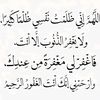 اللَّهُمَّ إِنِّي ظَلَمْتُ نَفْسِي ظُلْمًا كَثِيرًا،
وَلَا يَغْفِرُ الذُّنُوبَ إِلَّا أَنْتَ.
فَاغْفِرْ لِي مَغْفِرَةً مِنْ عِنْدِكَ
وَارْحَمْنِي إِنَّكَ أَنْتَ الْغَفُورُ الرَّحِيمُ